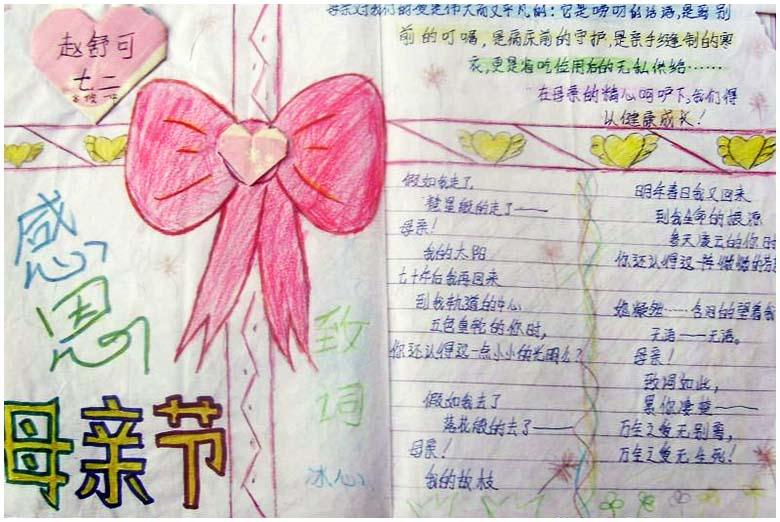 赵舒可
七二
母亲对我们的爱是伟大而又平凡的：它是唠叨的话语，是离别
前的叮嘱，是病床前的守护，是亲手缝制的寒
衣，更是省吃俭用后的无私供给……
在母亲的精心呵护下，我们得
以健康成长！
感恩
母亲节
致词
冰心
假如我走了，
彗星般的走了——
母亲！
我的太阳
七十年后我再回来
到我轨道的中心
五色重轮的你时，
你还认得这一点小小的光明么？
假如我去了
落花般的去了——
母亲！
我的故枝
明年春日我又回来
到我生命的根源
参天凌云的你时
你还认得这一阵微微的芬
她凝然……含泪的望着我
无语——无语。
母亲！
致词如此，
累你凄楚——
万全之爱无别离，
万全之爱无生死！